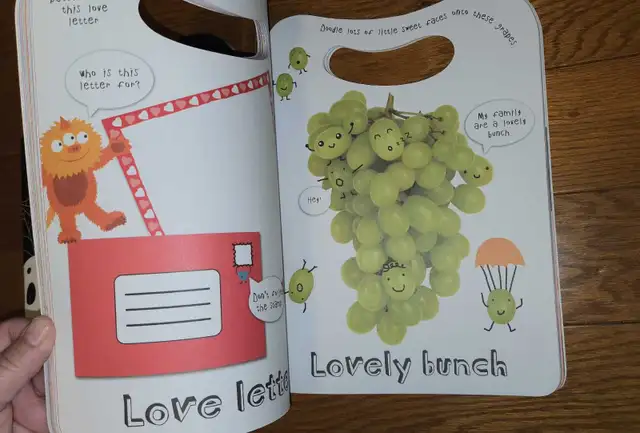 this love
letter
Who is this
letter for?
Don't
the
Love
Doodle lots of little sweet faces onto these grapes.
My family
are a lovely
bunch
Hey!
Lovely bunch